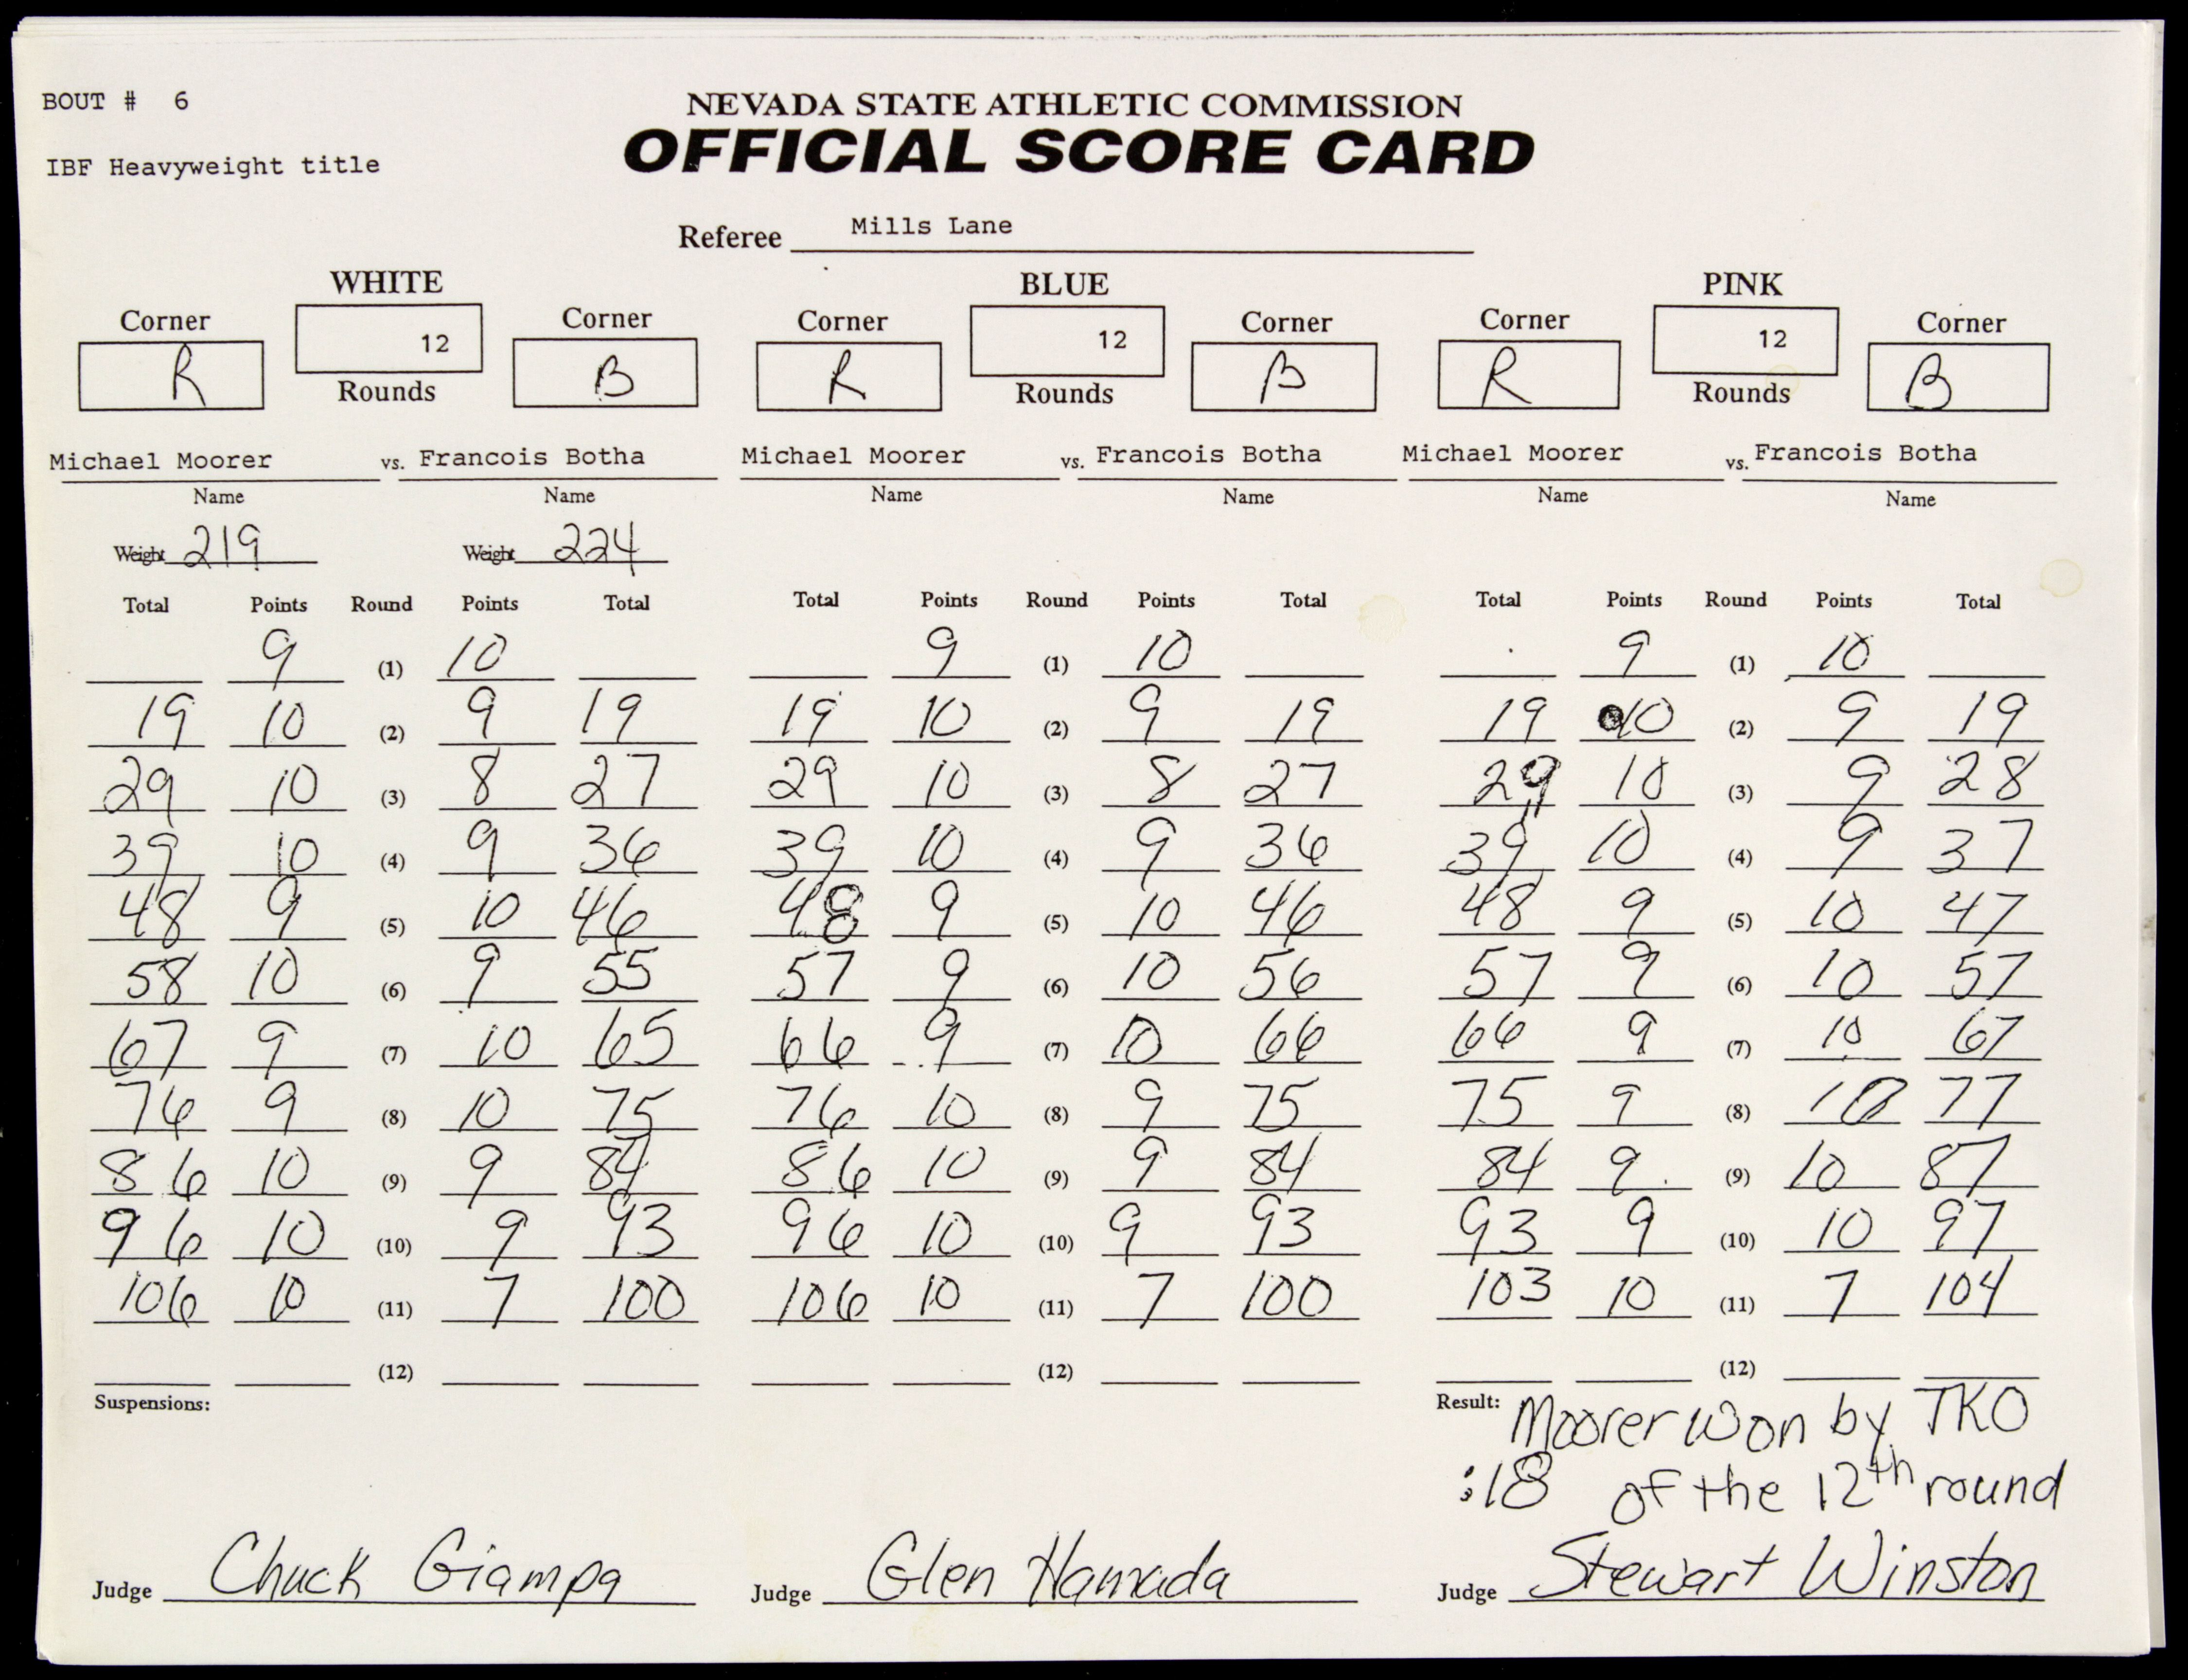 BOUT # 6
NEVADA STATE ATHLETIC COMMISSION
OFFICIAL SCORE CARD
IBF Heavyweight title
Referee Mills Lane
WHITE BLUE PINK
Corner 12 Corner Corner 12 Corner Corner 12 Corner
R Rounds B R Rounds B R Rounds B
Michael Moorer vs. Francois Botha Michael Moorer vs. Francois Botha Michael Moorer vs. Francois Botha
Name Name Name Name Name Name
Weight 219 Weight 224
Total Points Round Points Total Total Points Round Points Total Total Points Round Points Total
9 (1) 10 9 (1) 10 9 (1) 10
19 10 (2) 9 19 19 10 (2) 9 19 19 10 (2) 9 19
29 10 (3) 8 27 29 10 (3) 8 27 29 10 (3) 9 28
39 10 (4) 9 36 39 10 (4) 9 36 39 10 (4) 9 37
48 9 (5) 10 46 48 9 (5) 10 46 48 9 (5) 10 47
58 10 (6) 9 55 57 9 (6) 10 56 57 9 (6) 10 57
67 9 (7) 10 65 66 9 (7) 10 66 66 9 (7) 10 67
76 9 (8) 10 75 76 10 (8) 9 75 75 9 (8) 10 77
86 10 (9) 9 84 86 10 (9) 9 84 84 9 (9) 10 87
96 10 (10) 9 93 96 10 (10) 9 93 93 9 (10) 10 97
106 10 (11) 7 100 106 10 (11) 7 100 103 10 (11) 7 104
(12) (12) (12)
Suspensions: Result: Moorer won by TKO
:18 of the 12th round
Judge Chuck Giampa Judge Glen Hamada Judge Stewart Winston